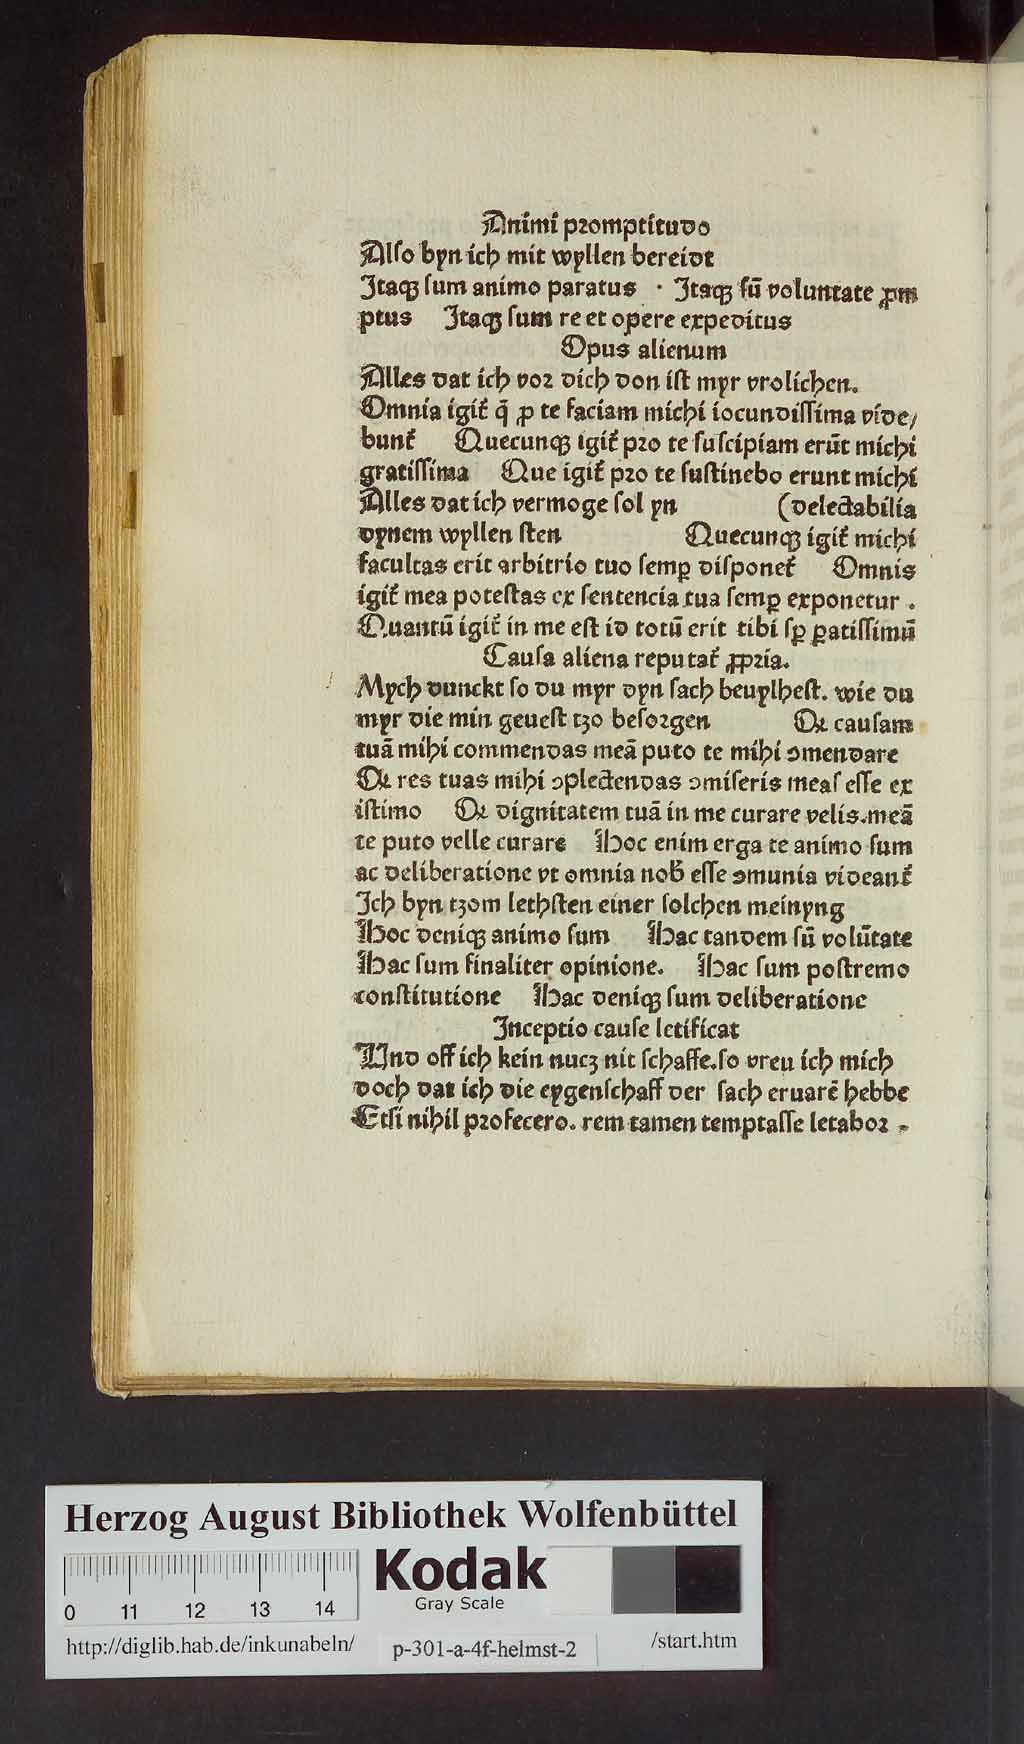 Animi promptitudo
Also byn ich mit wyllen bereidt
Itaqꝫ sum animo paratus · Itaqꝫ sū voluntate ꝓm
ptus Itaqꝫ sum re et opere expeditus
Opus alienum
Alles dat ich vor dich don ist myr vrolichen.
Omnia igit᷑ q̄ ꝓ te faciam michi iocundissima vide/
bunt᷑ Quecunqꝫ igit᷑ pro te suscipiam erūt michi
gratissima Que igit᷑ pro te sustinebo erunt michi
Alles dat ich vermoge sol yn (delectabilia
dynem wyllen sten Quecunqꝫ igit᷑ michi
facultas erit arbitrio tuo semꝑ disponet᷑ Omnis
igit᷑ mea potestas ex sentencia tua semꝑ exponetur .
Quantū igit᷑ in me est id totū erit tibi sꝑ ꝑatissimū
Causa aliena reputat᷑ ꝓpria.
Mych dunckt so du myr dyn sach beuylhest. wie du
myr die min geuest tzo besorgen Et causam
tuā mihi commendas meā puto te mihi ꝯmendare
Et res tuas mihi ꝯplectendas ꝯmiseris meas esse ex
istimo Et dignitatem tuā in me curare velis.meā
te puto velle curare Hoc enim erga te animo sum
ac deliberatione vt omnia nob᷑ esse ꝯmunia videant᷑
Ich byn tzom lethsten einer solchen meinyng
Hoc deniqꝫ animo sum Hac tandem sū volūtate
Hac sum finaliter opinione. Hac sum postremo
constitutione Hac deniqꝫ sum deliberatione
Inceptio cause letificat
Und off ich kein nucz nit schaffe.so vreu ich mich
doch dat ich die eygenschaff der sach eruarē hebbe
Etsi nihil profecero. rem tamen temptasse letabor .
Herzog August Bibliothek Wolfenbüttel
Kodak
Gray Scale
0 11 12 13 14
http://diglib.hab.de/inkunabeln/ p-301-a-4f-helmst-2 /start.htm